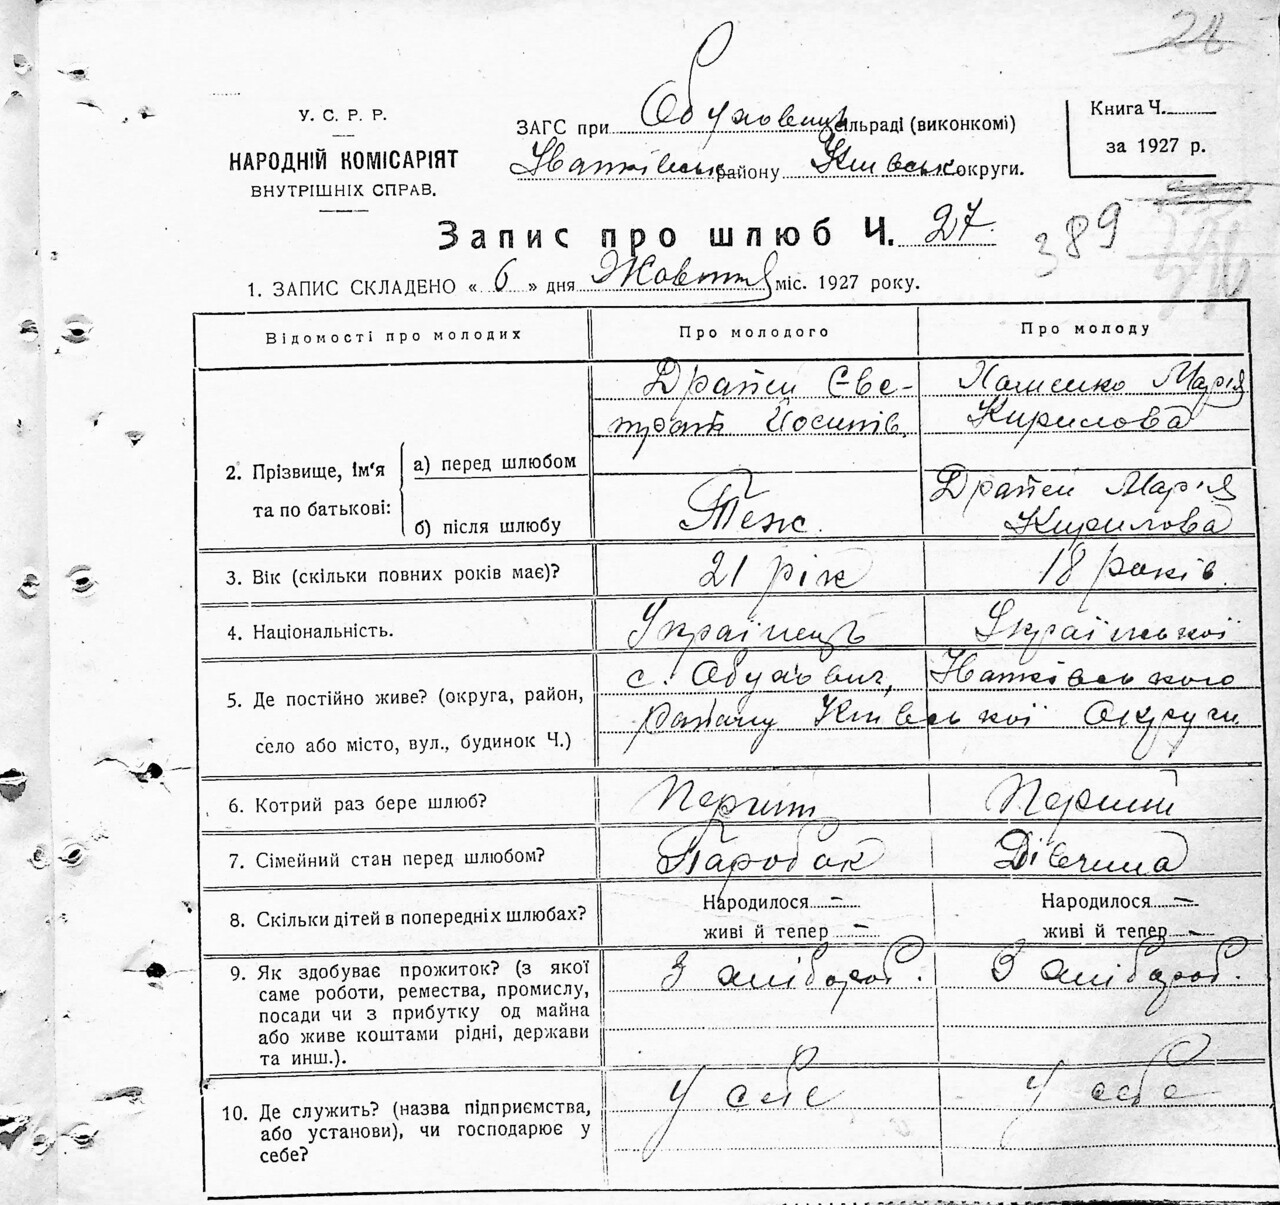 28
У. С. Р. Р.
НАРОДНІЙ КОМІСАРІЯТ
ВНУТРІШНІХ СПРАВ.
ЗАГС при Обуховицьк сільраді (виконкомі)
району Київськ округи.
Книга Ч.
за 1927 р.
Запис про шлюб Ч. 27.
389
1. ЗАПИС СКЛАДЕНО « 6 » дня Жовтня міс. 1927 року.
Відомості про молодих
Про молодого
Про молоду
2. Прізвище, ім'я та по батькові:
а) перед шлюбом
Євс-
трат Йосипів.
Марія
Кирилова
б) після шлюбу
Теж.
Марія
Кирилова
3. Вік (скільки повних років має)?
21 рік
18 років.
4. Національність.
Українець
Української
5. Де постійно живе? (округа, район,
село або місто, вул., будинок Ч.)
с. Обухович,
району Київської Округи
6. Котрий раз бере шлюб?
Перший
Перший
7. Сімейний стан перед шлюбом?
Паробок
Дівчина
8. Скільки дітей в попередніх шлюбах?
Народилося —
живі й тепер —
Народилося —
живі й тепер —
9. Як здобуває прожиток? (з якої
саме роботи, ремества, промислу,
посади чи з прибутку од майна
або живе коштами рідні, держави
та инш.).
З хлібороб.
З хлібороб.
10. Де служить? (назва підприємства,
або установи), чи господарює у
себе?
У себе
У себе